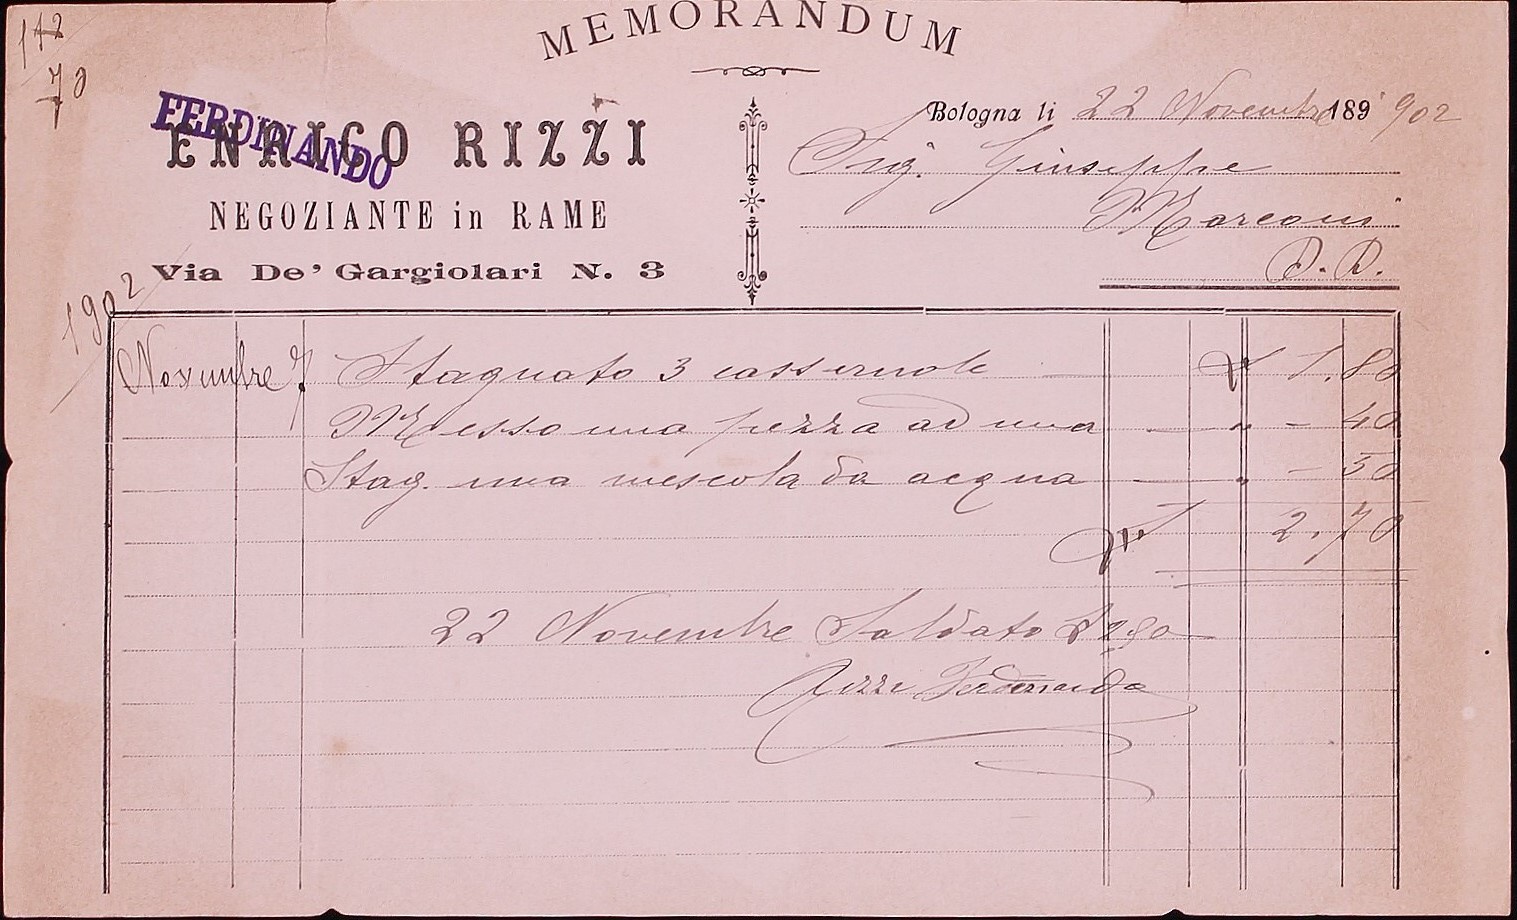 112
70
MEMORANDUM
FERDINANDO
ENRICO RIZZI
NEGOZIANTE in RAME
Via De' Gargiolari N. 3
Bologna li 22 Novembre 189 902
Sig. Giuseppe
Marconi
S. R.
1902
Novembre 7 Stagnato 3 casseruole £ 1.80
Messo una pezza ad una — " - 40
Stag. una mescola da acqua — " - 50
£ 2.70
22 Novembre Saldato
Rizzi Ferdinando